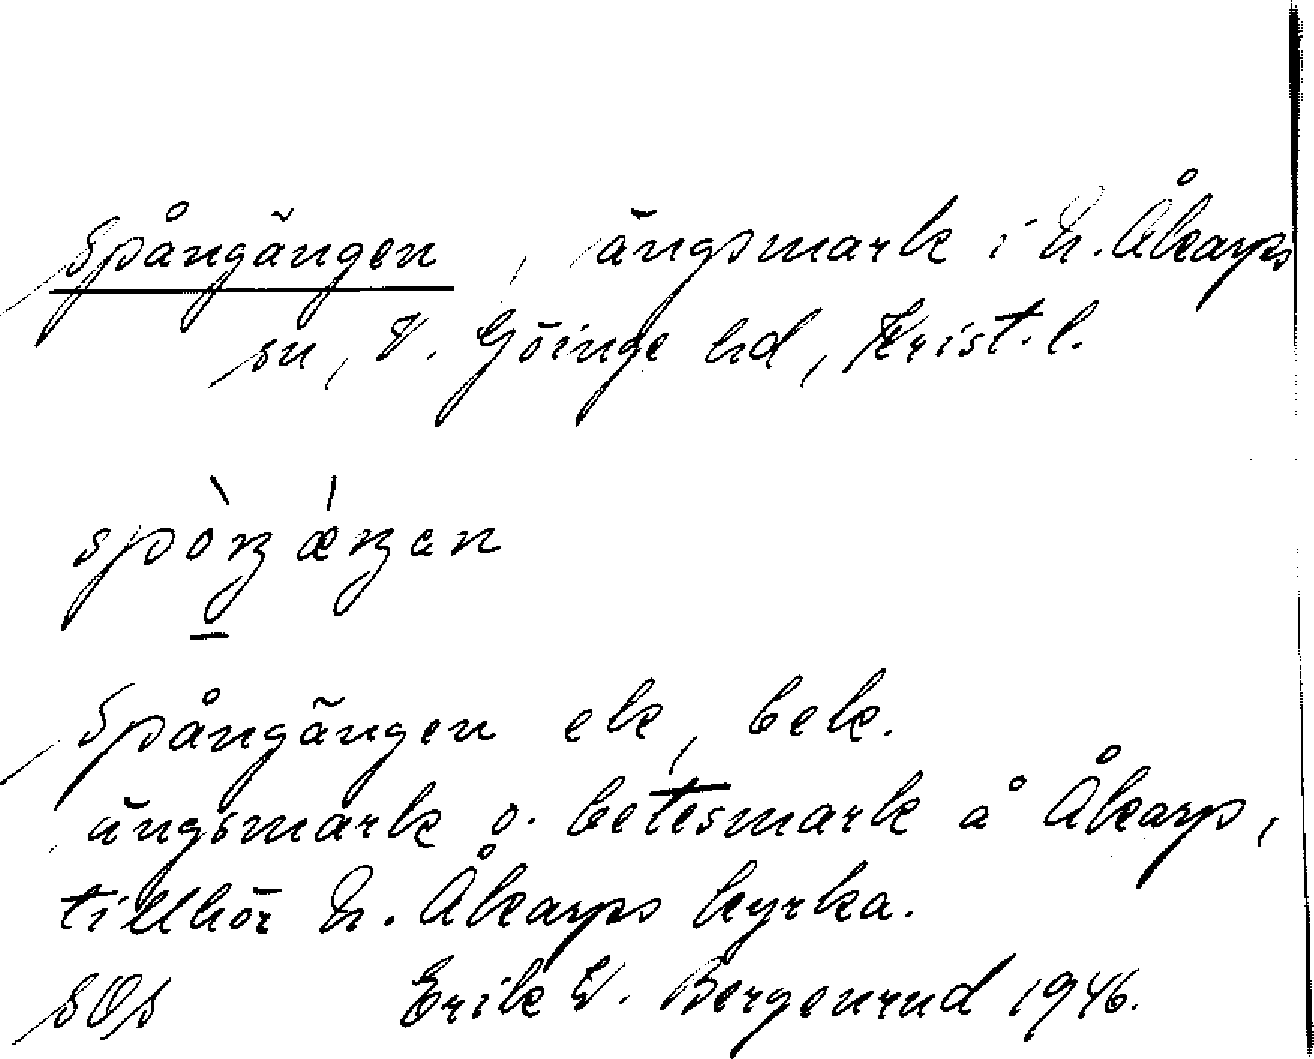 Spångängen, ängsmark i N. Åkarps
sn, V. Göinge hd, Krist. l.
spòŋǽŋan
Spångängen ek, bek.
ängsmark o. betesmark å Åkarp,
tillhör N. Åkarps kyrka.
SOS Erik W. Bergenrud 1946.